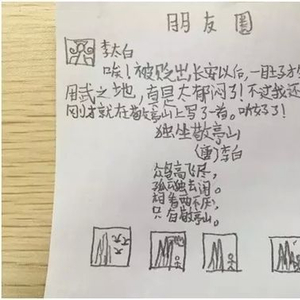 朋友圈
李太白
唉!被贬出长安以后,一肚子才
用武之地,真是太郁闷了!不过我还
刚才就在敬亭山上写了一首。听好了!
独坐敬亭山
(唐)李白
众鸟高飞尽,
孤云独去闲。
相看两不厌,
只有敬亭山。